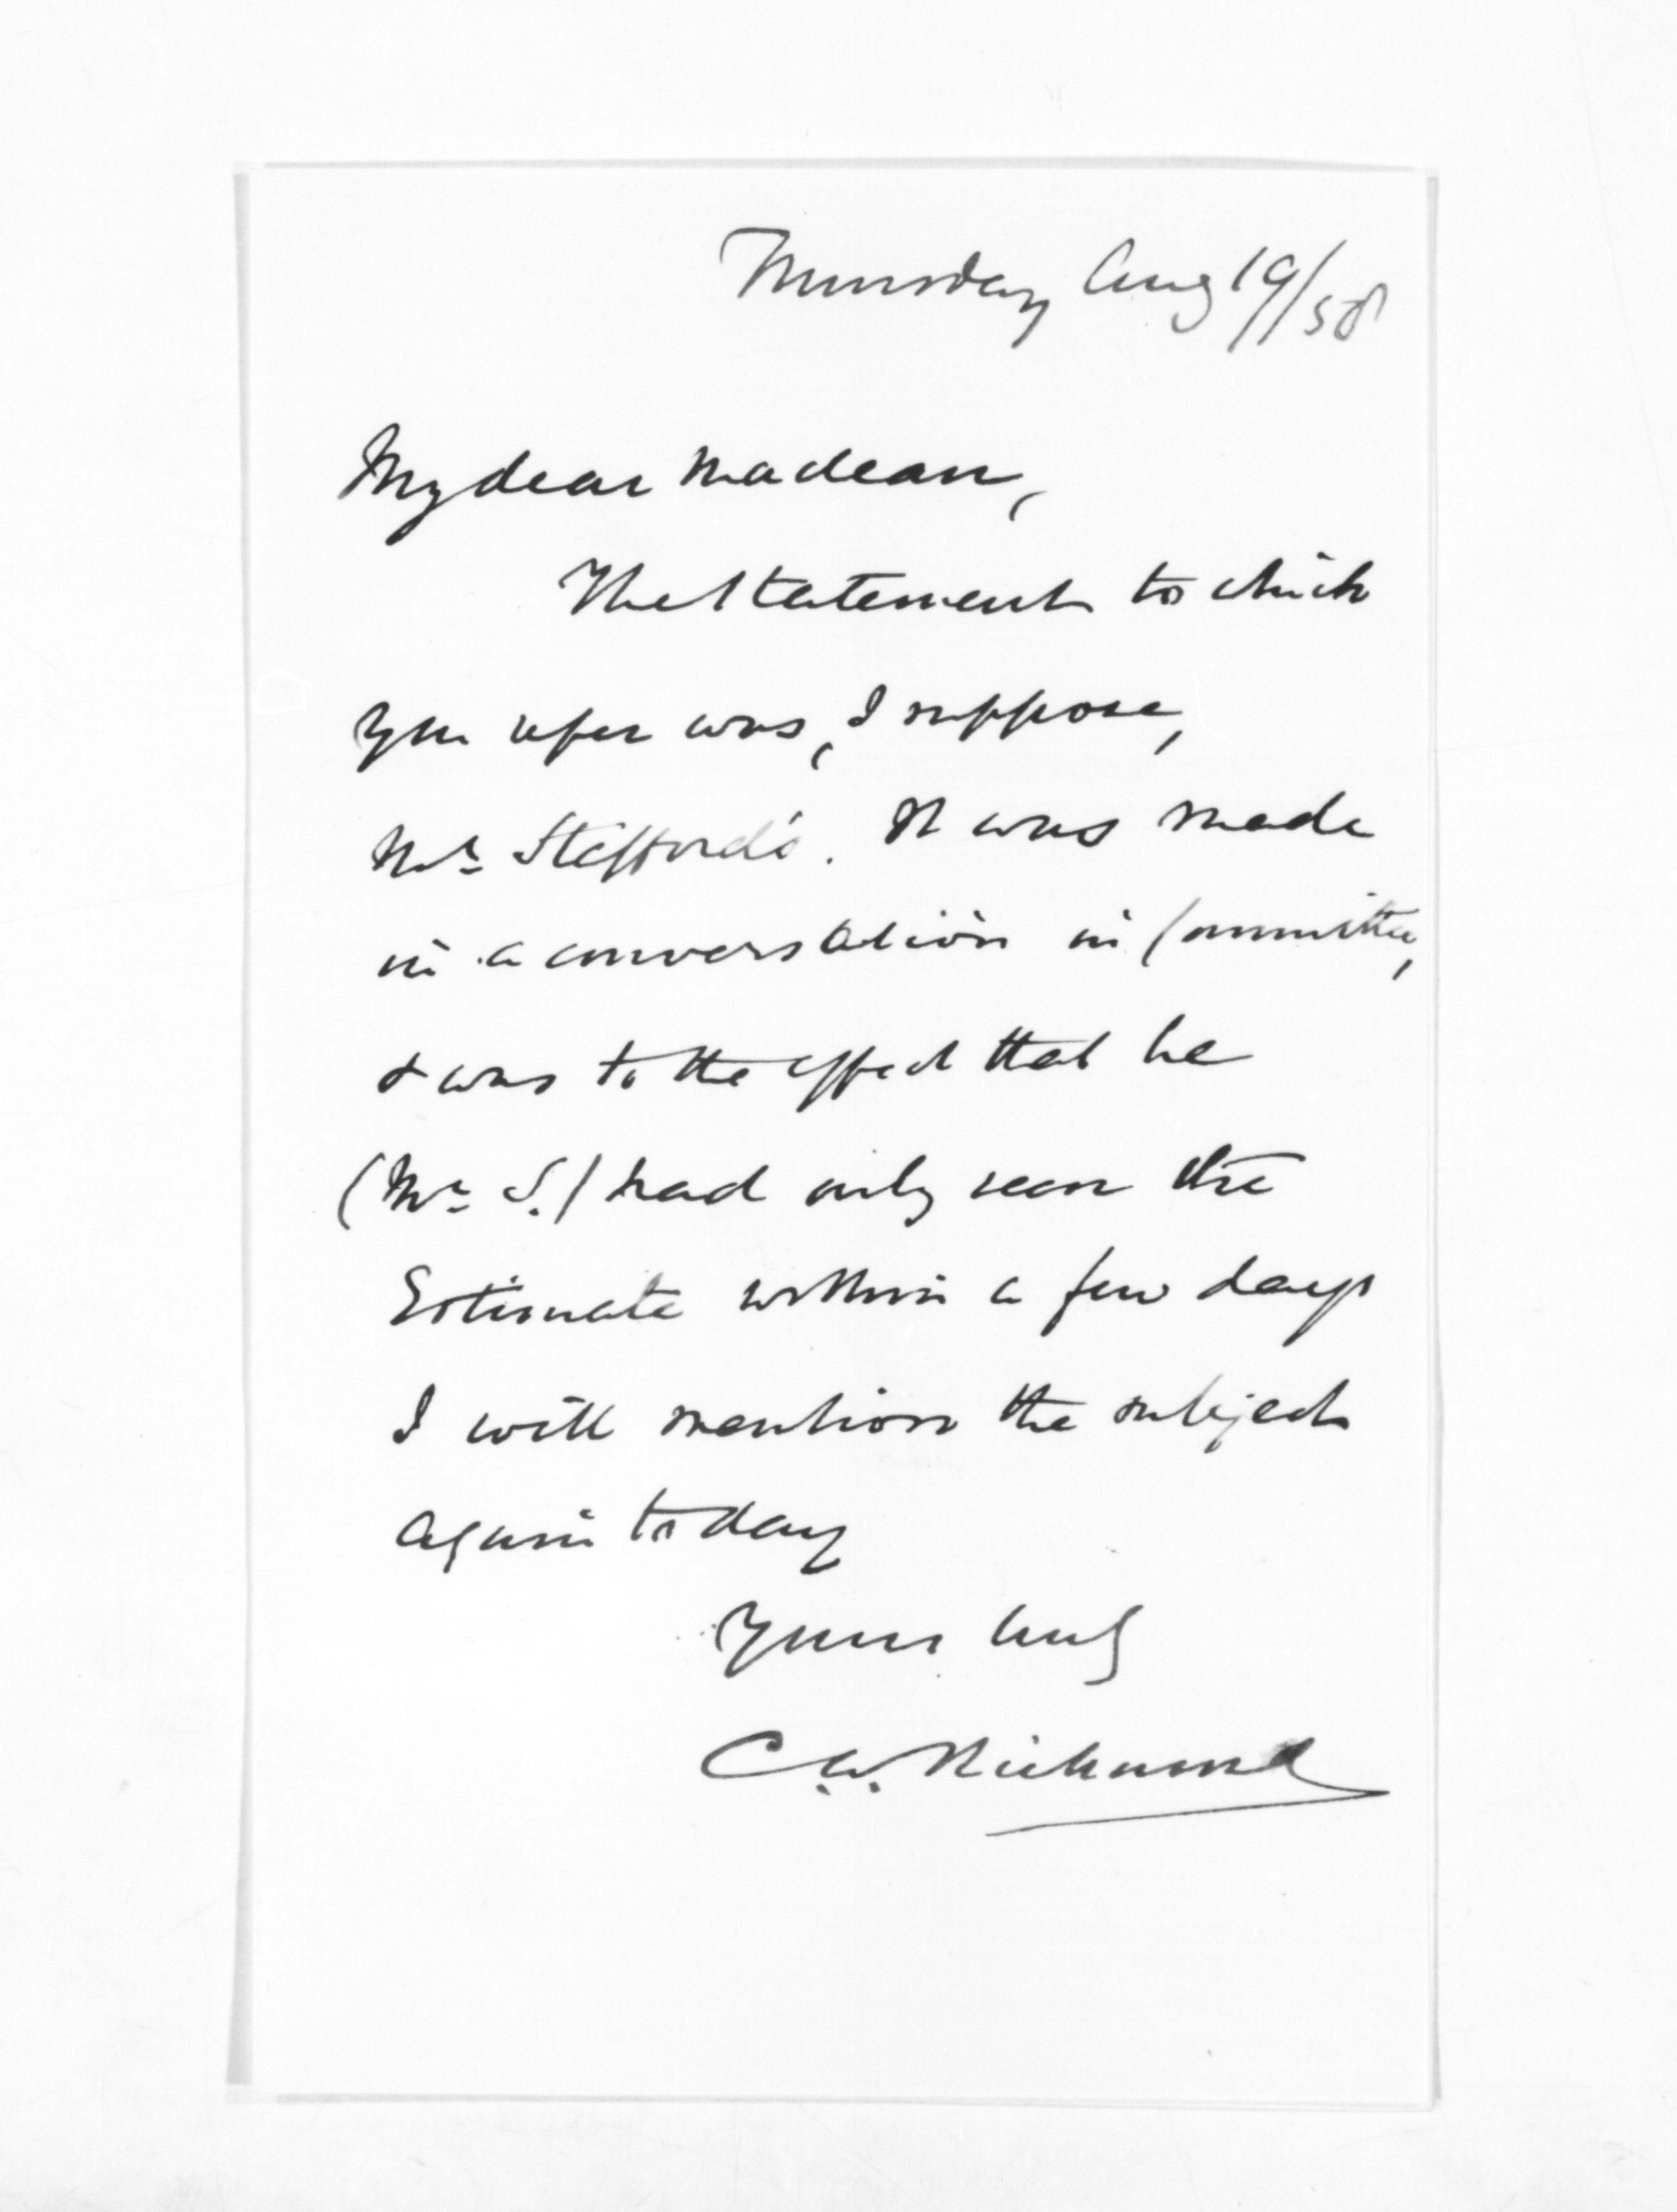 Thursday Aug 19/58
My dear Maclean,
The Statement to which
you refer was, I suppose,
Mr Stafford's. It was made
in a conversation in Committee,
& was to the effect that he
(Mr S.) had only seen the
Estimate within a few days
I will mention the subject
again to day
Yours truly
C.W. Richmond